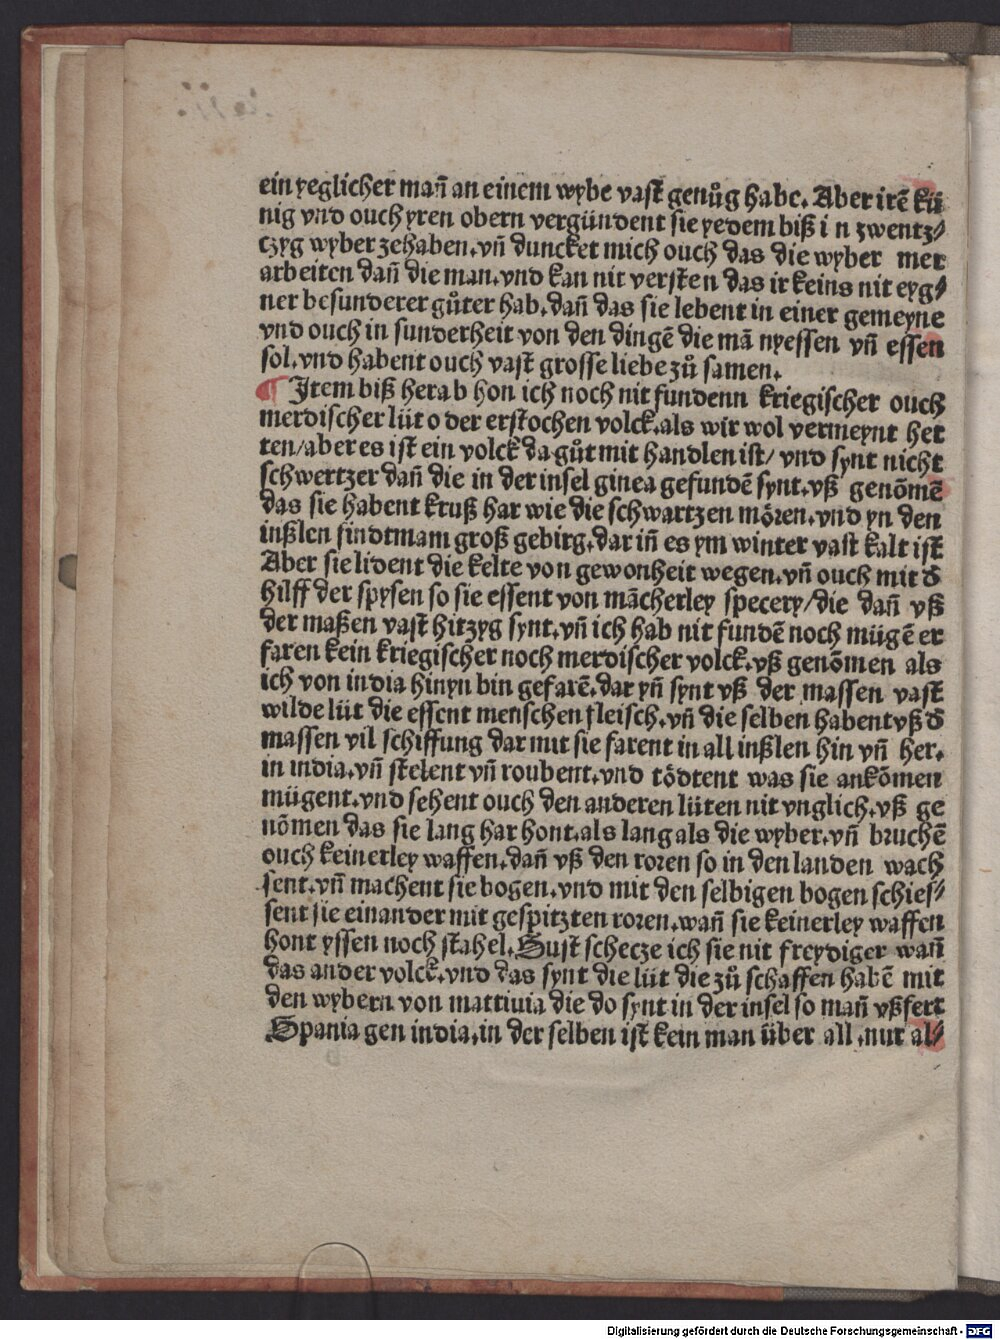 ein yeglicher mañ an einem wybe vast genůg habe. Aber irē kü
nig vnd ouch yren obern vergündent sie yedem biß i n zwentz⸗
tzyg wyber zehaben. vñ duncket mich ouch das die wyber mer
arbeiten dañ die man. vnd kan nit versten das ir keins nit eyg⸗
ner besunderer gůter hab. dañ das sie lebent in einer gemeyne
vnd ouch in sunderheit von den dingē die mā nyessen vñ essen
sol. vnd habent ouch vast grosse liebe zů samen.
¶ Item biß herab hon ich noch nit fundenn kriegischer ouch
merdischer lüt oder erstochen volck. als wir wol vermeynt het
ten/ aber es ist ein volck da gůt mit handlen ist/ vnd synt nicht
schwertzer dañ die in der insel ginea gefundē synt. vß genōmē
das sie habent kruß har wie die schwartzen mören. vnd yn den
inßlen sindtmam groß gebirg. dar iñ es ym winter vast kalt ist
Aber sie lident die kelte von gewonheit wegen. vñ ouch mit đ
hilff der spysen so sie essent von mācherley specery/ die dañ vß
der maßen vast hitzyg synt. vñ ich hab nit fundē noch mügē er
faren kein kriegischer noch merdischer volck. vß genōmen als
ich von india hinyn bin gefarē. dar yñ synt vß der massen vast
wilde lüt die essent menschen fleisch. vñ die selben habent vß đ
massen vil schiffung dar mit sie farent in all inßlen hin vñ her.
in india. vñ stelent vñ roubent. vnd tödtent was sie ankōmen
mügent. vnd sehent ouch den anderen lüten nit vnglich. vß ge
nōmen das sie lang har hont. als lang als die wyber. vñ bruchē
ouch keinerley waffen. dañ vß den roren so in den landen wach
sent. vñ machent sie bogen. vnd mit den selbigen bogen schies⸗
sent sie einander mit gespitzten roren. wañ sie keinerley waffen
hont yssen noch stahel. Sust schecze ich sie nit freydiger wañ
das ander volck. vnd das synt die lüt die zů schaffen habē mit
den wybern von mattiuia die do synt in der insel so mañ vßfert
Spania gen india. in der selben ist kein man über all. nur al⸗
Digitalisierung gefördert durch die Deutsche Forschungsgemeinschaft - DFG